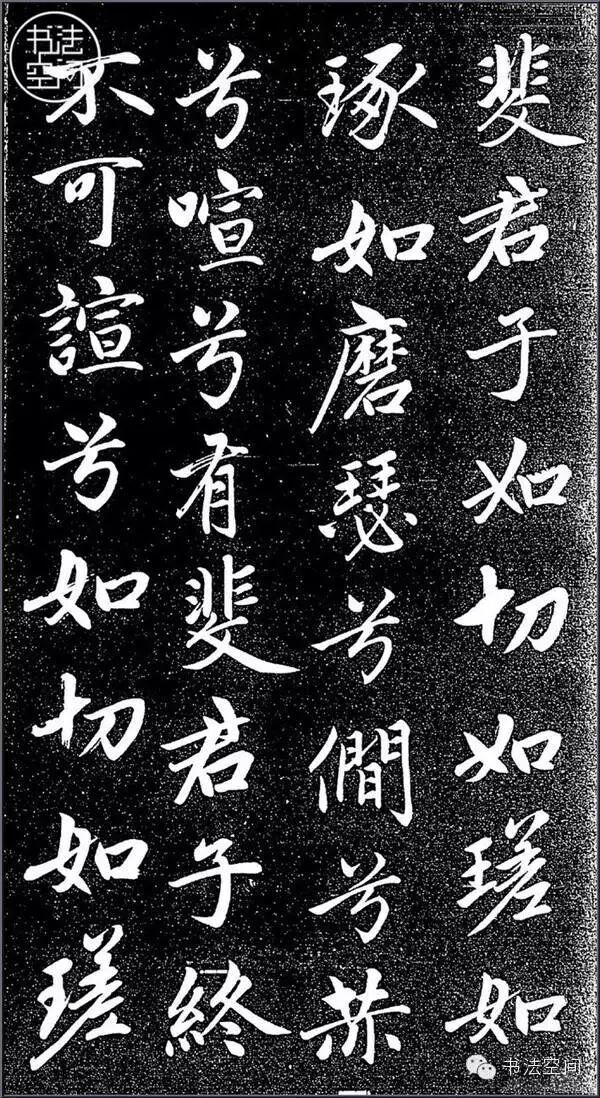 斐君子如切如瑳如
琢如磨瑟兮僩兮赫
兮喧兮有斐君子終
不可諠兮如切如瑳
书法空间
书法空间